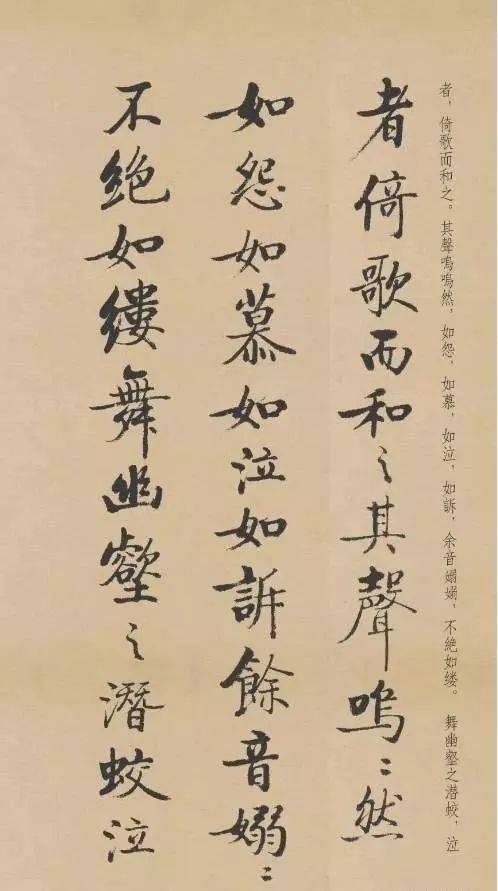 者,倚歌而和之。其聲嗚嗚然,如怨,如慕,如泣,如訴,余音嫋嫋,不絕如缕。 舞幽壑之潜蛟,泣
者倚歌而和之其聲嗚〻然
如怨如慕如泣如訴餘音嫋〻
不絕如縷舞幽壑之潛蛟泣